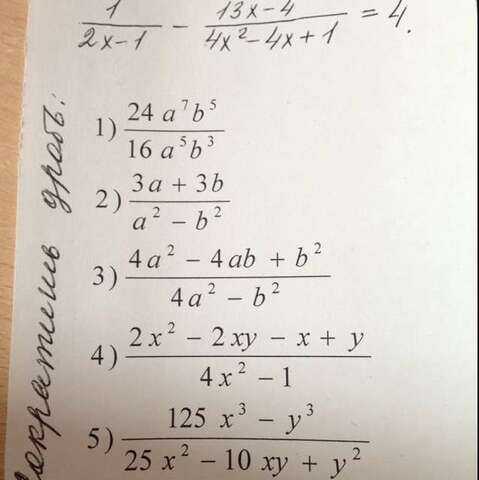 1/(2x-1) - (13x-4)/(4x²-4x+1) = 4.
Сократить дробь:
1) 24 a⁷b⁵ / 16 a⁵b³
2) (3a + 3b) / (a² − b²)
3) (4a² − 4ab + b²) / (4a² − b²)
4) (2x² − 2xy − x + y) / (4x² − 1)
5) (125 x³ − y³) / (25 x² − 10 xy + y²)